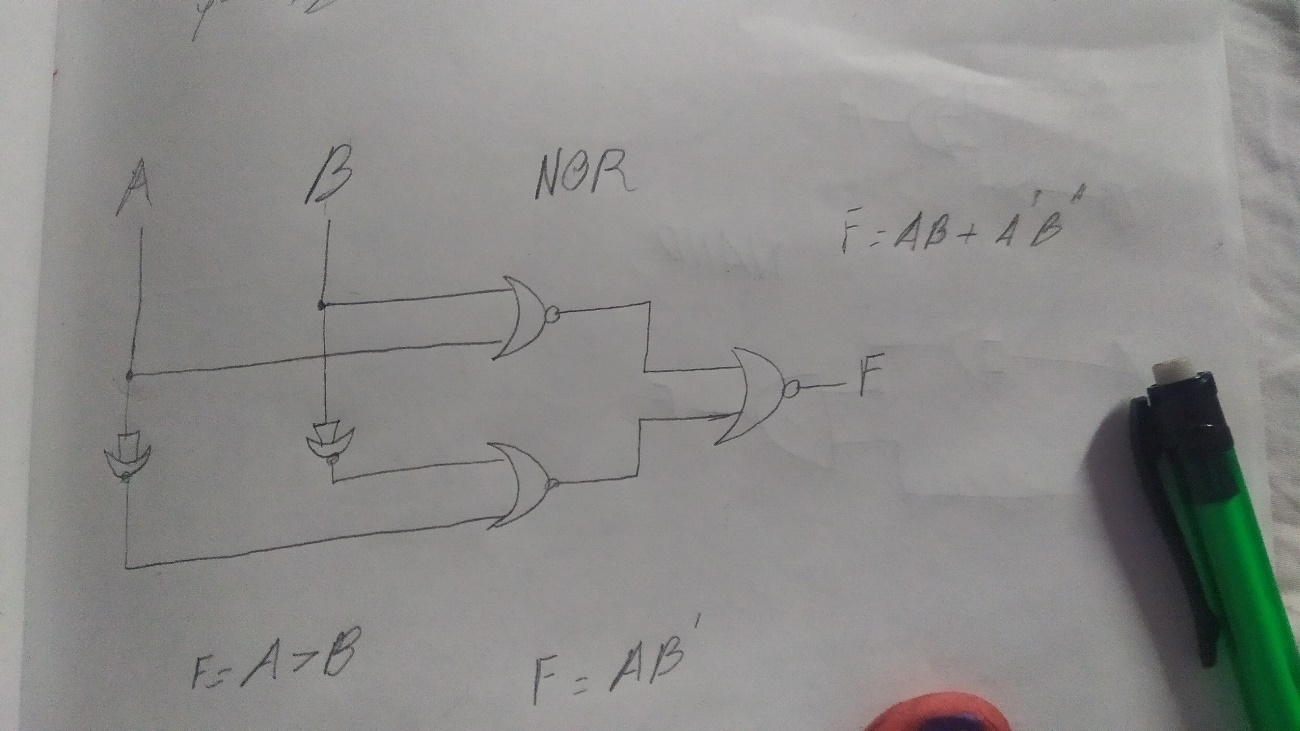 A B NOR
F = AB + A'B'
F
F = A > B F = AB'